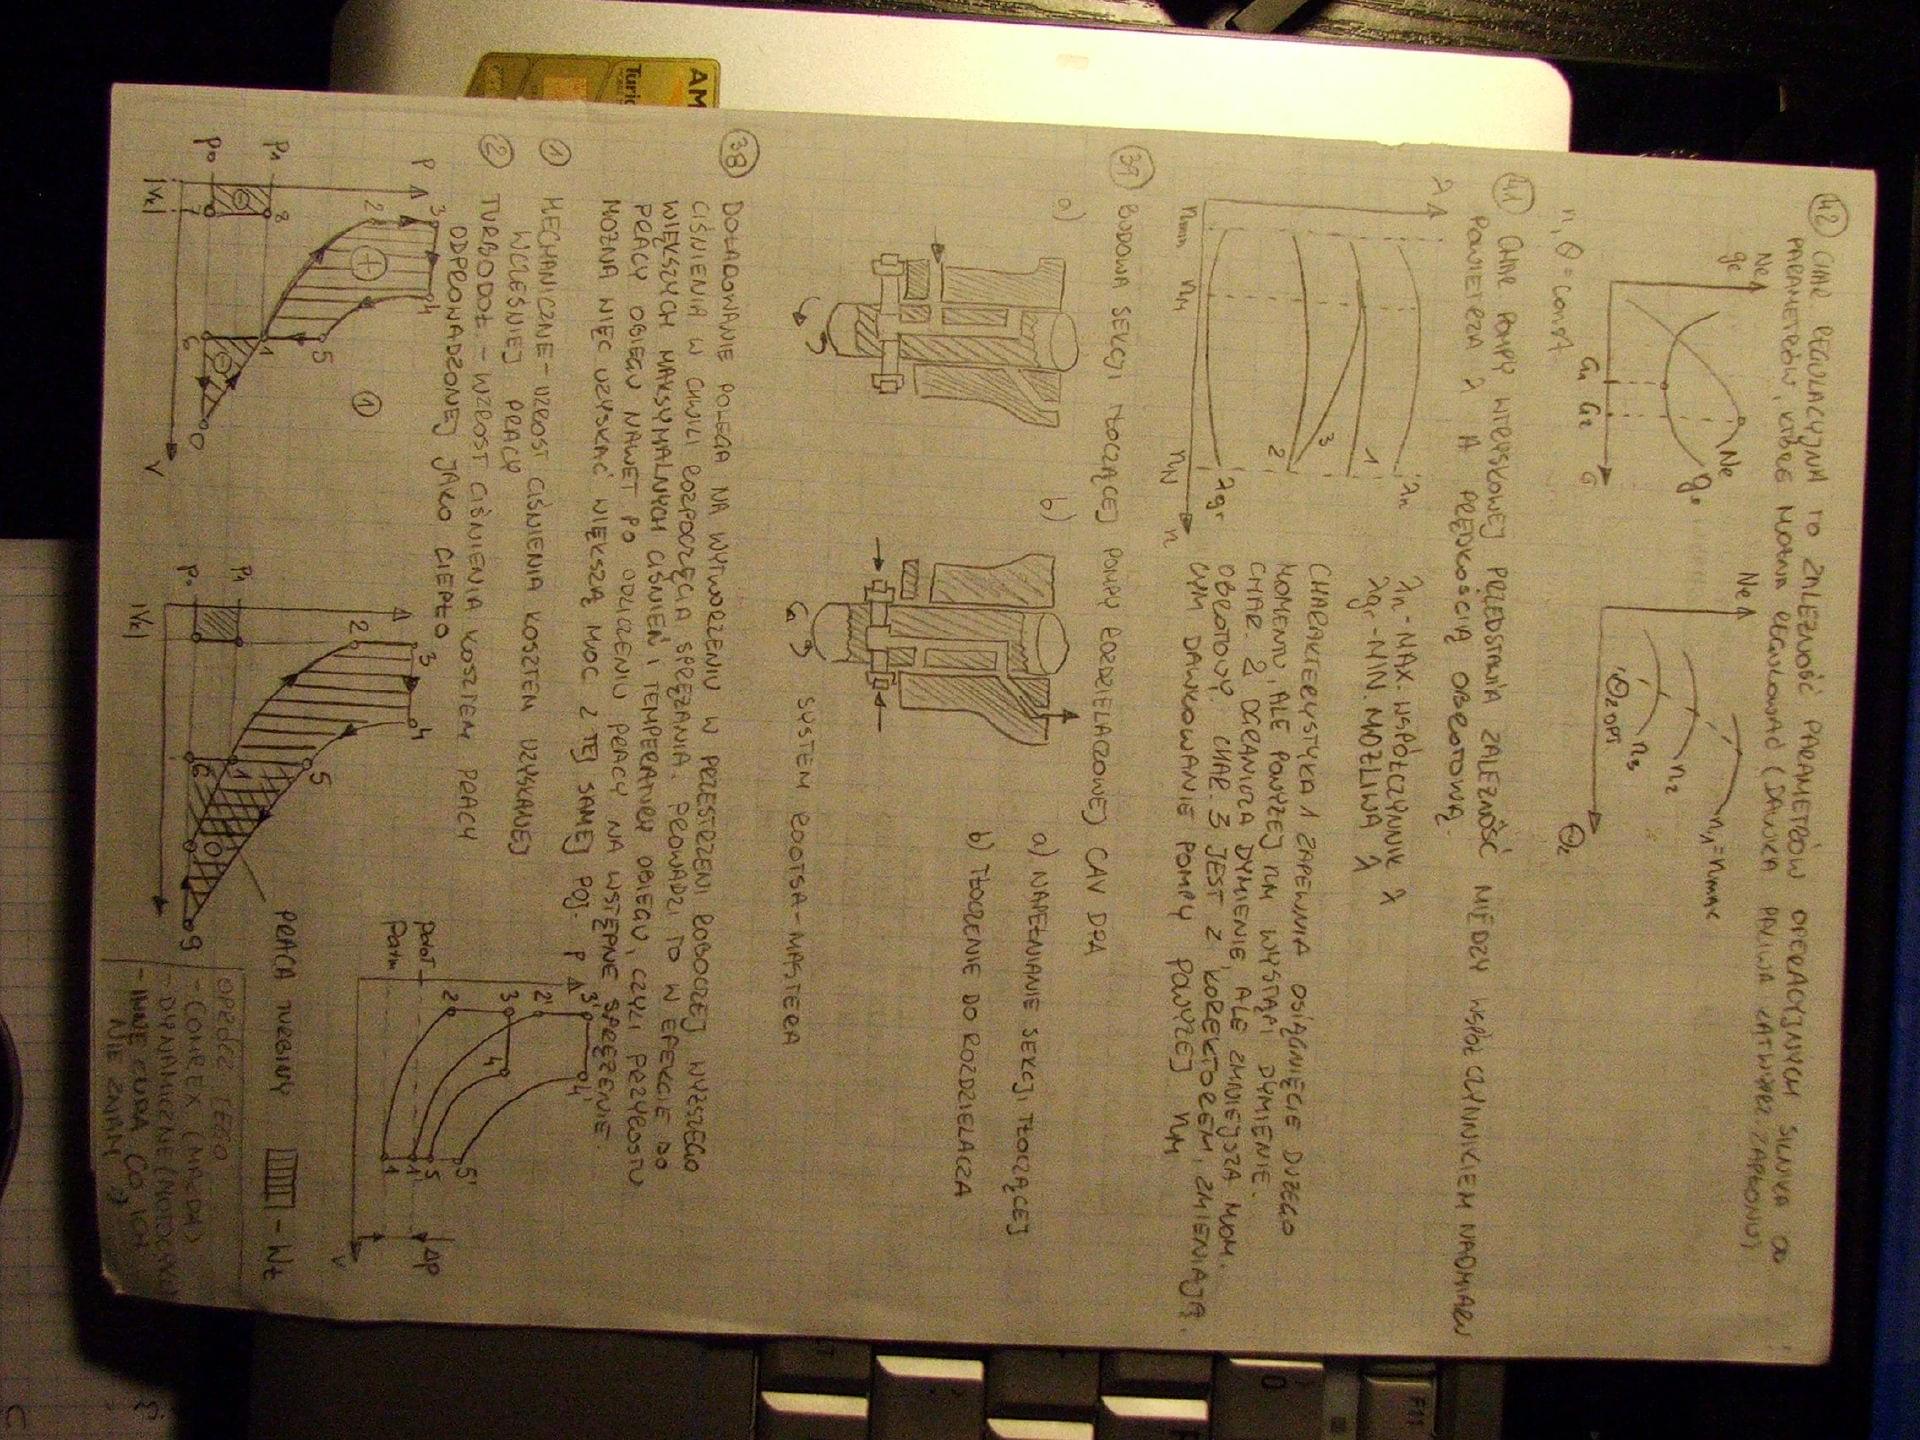 42 CHAR. REGULACYJNA TO ZALEŻNOŚĆ PARAMETRÓW OPERACYJNYCH SILNIKA OD
PARAMETRÓW, KTÓRE MOŻNA REGULOWAĆ (DAWKA PALIWA, KĄT WYPRZ. ZAPŁONU)
Ne
ge
Ne
ge
G1 G2
G
n, Θ = const
Ne
n1 = nmax
n2
n3
Θz OPT
Θz
41 CHAR. POMPY WTRYSKOWEJ PRZEDSTAWIA ZALEŻNOŚĆ MIĘDZY WSPÓŁCZYNNIKIEM NADMIARU
POWIETRZA λ A PRĘDKOŚCIĄ OBROTOWĄ.
λ
λn
1
3
2
λgr
nmin
nM
nN
n
λn - MAX. WSPÓŁCZYNNIK λ
λgr - MIN. MOŻLIWA λ
CHARAKTERYSTYKA 1 ZAPEWNIA OSIĄGNIĘCIE DUŻEGO
MOMENTU, ALE PONIŻEJ nM WYSTĄPI DYMIENIE.
CHAR. 2 OGRANICZA DYMIENIE, ALE ZMNIEJSZA MOM.
OBROTOWY. CHAR. 3 JEST Z KOREKTOREM, ZMIENIAJĄ-
CYM DAWKOWANIE POMPY POWYŻEJ nM
39 BUDOWA SEKCJI TŁOCZĄCEJ POMPY ROZDZIELACZOWEJ CAV DPA
a)
b)
a) NAPEŁNIANIE SEKCJI TŁOCZĄCEJ
b) TŁOCZENIE DO ROZDZIELACZA
SYSTEM ROOTSA-MASTERA
38 DOŁADOWANIE POLEGA NA WYTWORZENIU W PRZESTRZENI ROBOCZEJ WYŻSZEGO
CIŚNIENIA W CHWILI ROZPOCZĘCIA SPRĘŻANIA. PROWADZI TO W EFEKCIE DO
WIĘKSZYCH MAKSYMALNYCH CIŚNIEŃ I TEMPERATUR OBIEGU, CZYLI PRZYROSTU
PRACY OBIEGU NAWET PO ODLICZENIU PRACY NA WSTĘPNE SPRĘŻENIE.
MOŻNA WIĘC UZYSKAĆ WIĘKSZĄ MOC Z TEJ SAMEJ POJ.
1 MECHANICZNE - WZROST CIŚNIENIA KOSZTEM UZYSKANEJ
WCZEŚNIEJ PRACY
2 TURBODOŁ - WZROST CIŚNIENIA KOSZTEM PRACY
ODPROWADZONEJ JAKO CIEPŁO
P
3
4
2
+
5
P1
8
1
P0
7
6
0
|Vk|
V
1
3
4
2
5
P1
1
P0
6
0
9
|Vk|
PRACA TURBINY
- Wt
P
3'
4'
2'
3
4
2
5'
5
1'
1
Pdoł
Patm
Δp
V
OPRÓCZ TEGO
- COMREX (MAZDA)
- DYNAMICZNE (MOTOCYKLE)
- INNE CUDA, CO ICH
NIE ZNAM ;)
AM
Turi
F11